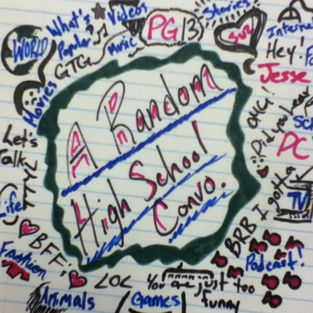 What's
Popular
Videos
Music
PG13
Stories
Internet
Hey!
Jesse
WORLD
GTG
Movies
OMG!
Did you hear
PC
A Random
High School
Convo.
Let's
Talk
TTYL
I got a
TV
Life
BFF!
BRB
Podcast!
Fashion
LOL
You are just too
funny
Animals
Games